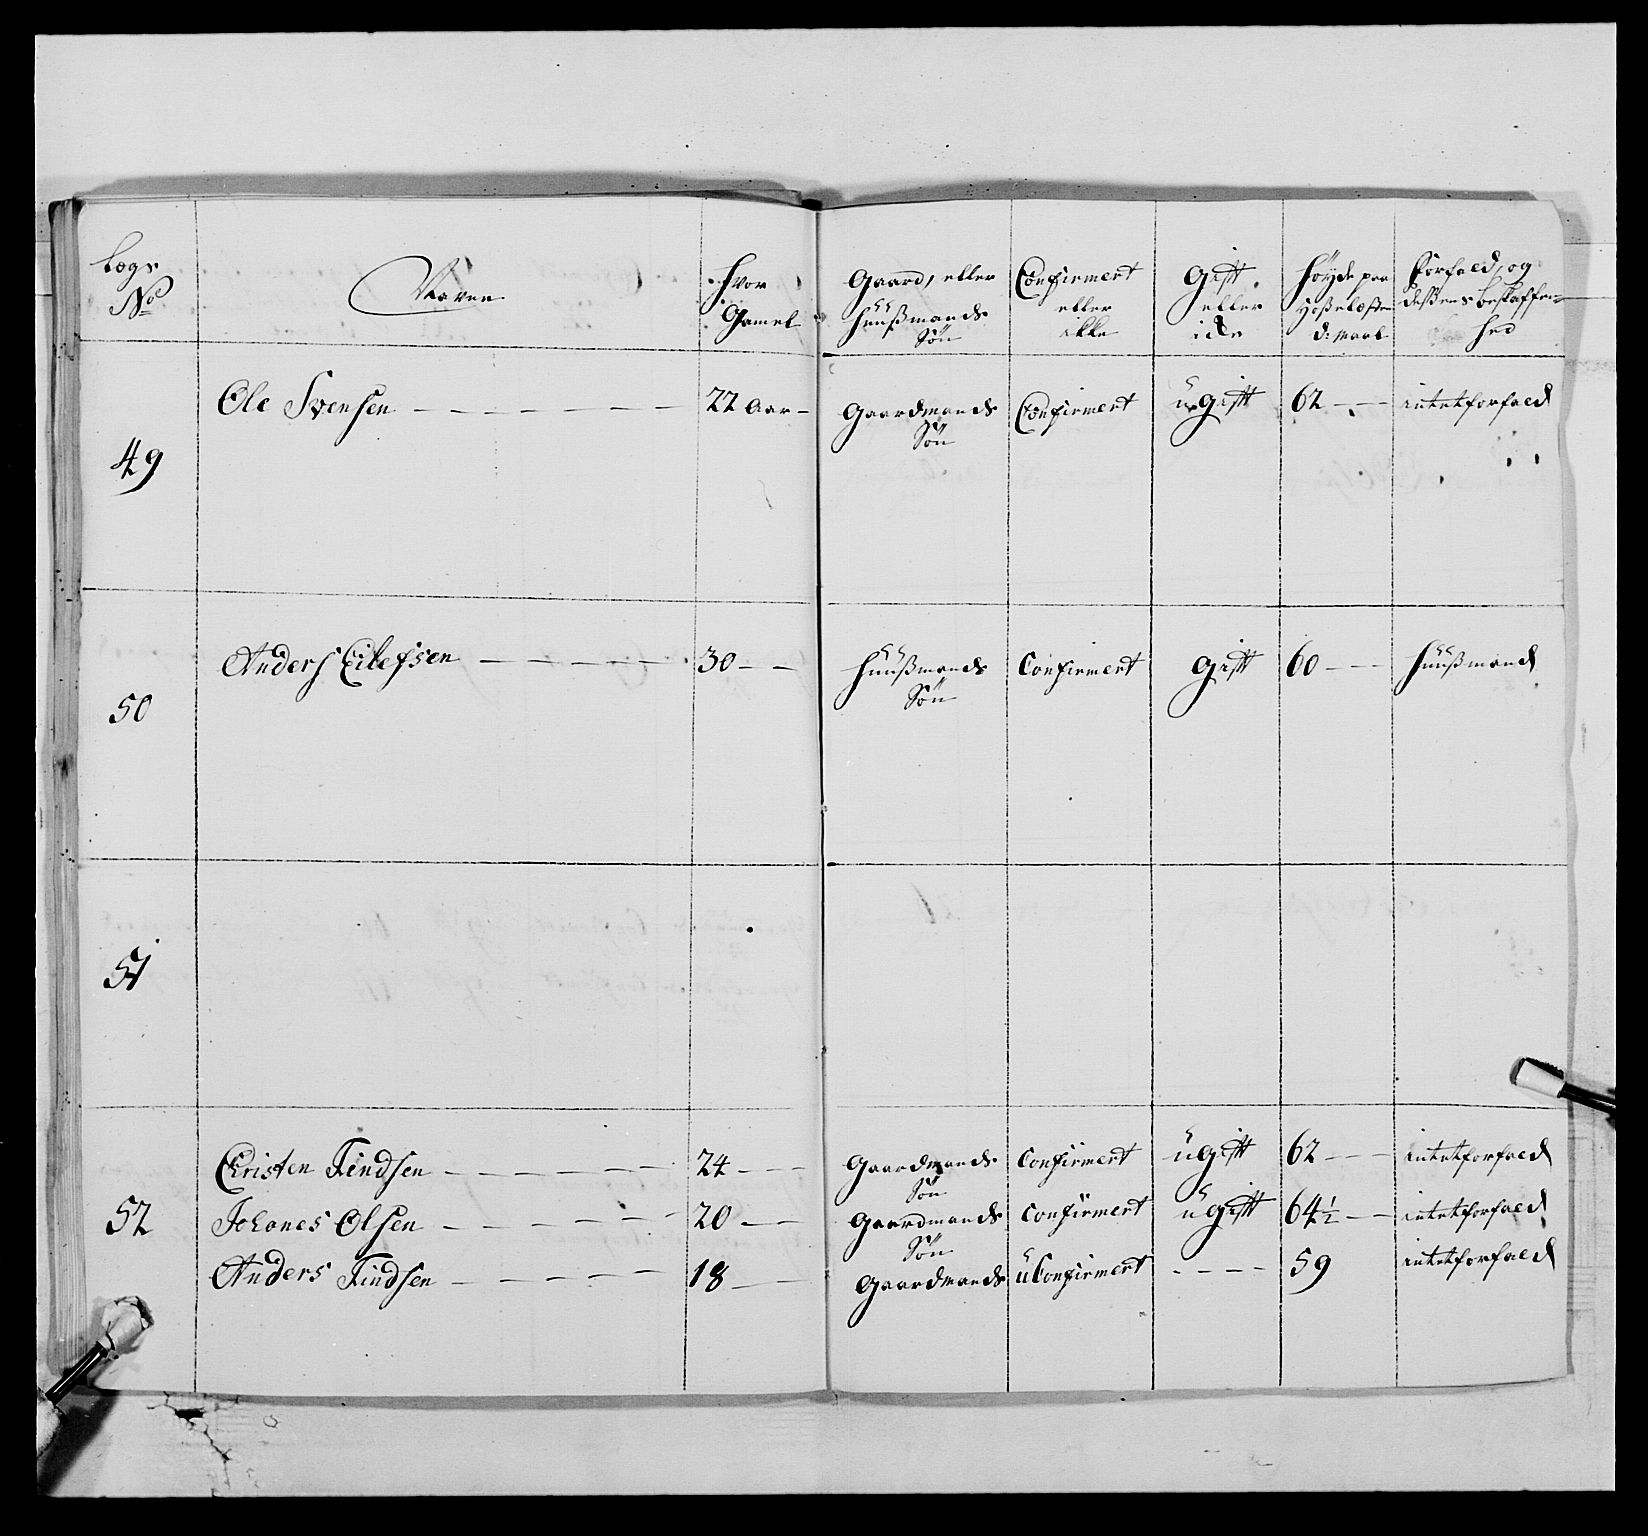 Lægs No
Navne
Hvor Gamel
Gaard, eller Huusmands Søn
Confirmert eller ikke
Gift eller icke
Høyde paa d: Maal
Forfald, og dessens beskaffenhed
49
Ole Svensen 22 Aar Gaardmands Søn Confirmert ugift 62 intet forfald
50
Anders Eilefsen 30 Huusmands Søn Confirmert Gift 60 Huusmand
51
Christen Findsen 24 Gaardmands Søn Confirmert ugift 62 intet forfald
52
Johanes Olsen 20 Gaardmands Søn Confirmert ugift 64½ intet forfald
Anders Findsen 18 Gaardmands uConfirmert 59 intet forfald